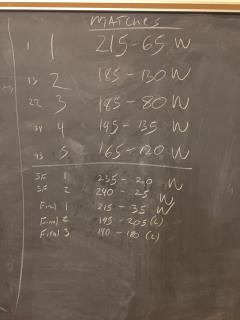 MATCHES
1 1 215-65 W
13 2 185-130 W
22 3 185-80 W
34 4 195-135 W
43 5 165-120 W
SF 1 235-20 W
SF 2 240-25 W
Final 1 215-35 W
Final 2 195-205 (L)
Final 3 140-180 (L)